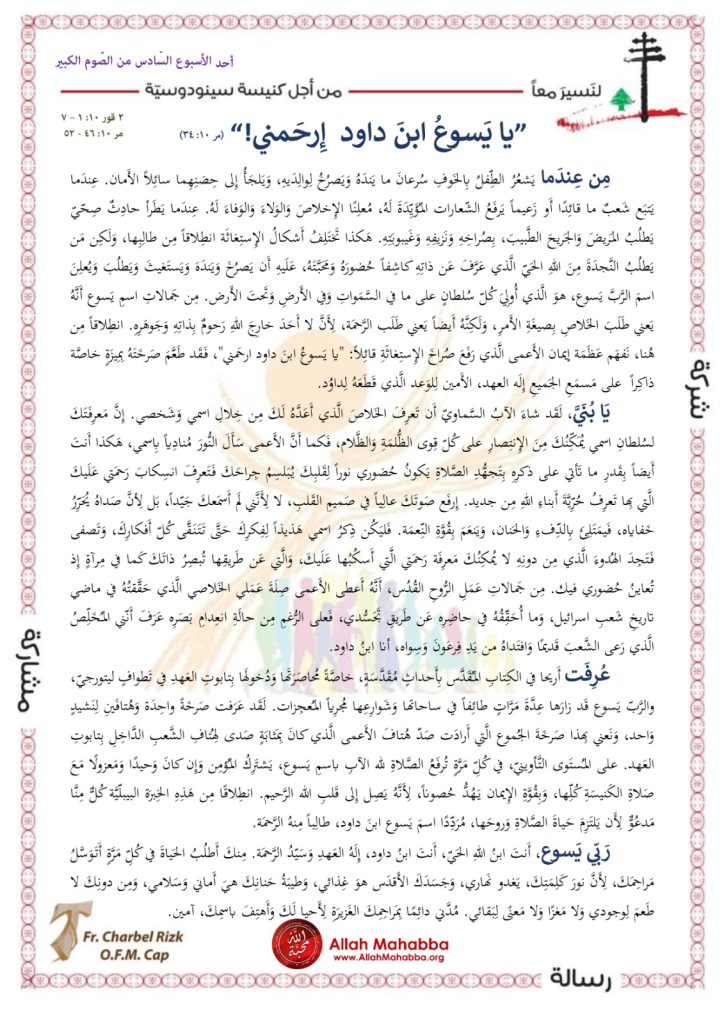 أحد الأسبوع السّادس من الصّوم الكبير
لنَسيرَ معاً
من أجل كنيسة سينودوسيّة
٢ قور ١٠: ١ - ٧
مر ١٠: ٤٦ - ٥٢
”يا يَسوعُ ابنَ داود إِرحَمني!“ (مر ١٠: ٣٤)
مِن عِندَما يَشعُرُ الطِّفلُ بِالخَوفِ سُرعانَ ما يَندَهُ وَيَصرُخُ لِوالِدَيهِ، وَيَلجَأُ إلى حِضنِهِما سائِلاً الأمان. عِندَما
يَتبَع شَعبٌ ما قائدًا أَو زَعيماً يَرفَعُ الشّعارات المُؤَيِّدَةَ لَهُ، مُعلِنًا الإخلاصَ وَالوَلاءَ وَالوَفاءَ لَهُ. عِندَما يَطرَأ حادِثٌ صِحّيّ
يَطلُبُ المَريضُ وَالجَريحُ الطَّبيبَ، بِصُراخِهِ وَنَزيفِهِ وَغَيبوبَتِهِ. هَكذا تَختَلِفُ أَشكالُ الإِستِغاثَة انطِلاقاً مِن طالِبِها، وَلَكِن مَن
يَطلُبُ النَّجدَةَ مِنَ اللهِ الحَيّ الَّذي عَرَّفَ عَن ذاتِهِ كاشِفاً حُضورَهُ وَمَحَبَّتَهُ، عَلَيهِ أَن يَصرُخَ وَيَندَهَ وَيَستَغيثَ وَيَطلُبَ وَيُعلِنَ
اسمَ الرَّبِّ يَسوع، هوَ الَّذي أُولِيَ كُلّ سُلطانٍ على ما في السَّمَواتِ وَفي الأرضِ وَتَحتَ الأرض. مِن جَمالاتِ اسمِ يَسوع أَنَّهُ
يَعني طَلَبَ الخَلاصِ بِصيغَةِ الأمرِ، وَلَكِنَّهُ أيضاً يَعني طَلَب الرَّحمَة، لأنَّ لا أَحَدَ خارِجَ اللهِ رَحومٌ بِذاتِهِ وَجَوهَرِهِ. انطِلاقاً مِن
هُنا، نَفهَم عَظَمَة إيمان الأعمى الَّذي رَفَعَ صُراخَ الإِستِغاثَةِ قائلاً: "يا يَسوعُ ابنَ داود ارحَمني"، فَقَد طَعَّمَ صَرخَتَهُ بِميزَةٍ خاصَّة
ذاكِراً على مَسمَعِ الجَميعِ إلَه العهد، الأمين لِلوَعد الَّذي قَطَعَهُ لِداوُد.
يَا بُنَيَّ، لَقَد شاءَ الآبُ السَّماويّ أَن تَعرِفَ الخَلاصَ الَّذي أَعَدَّهُ لَكَ مِن خِلالِ اسمي وَشَخصي. إنَّ مَعرِفَتَكَ
لسُلطانِ اسمي يُمَكِّنُكَ مِنَ الإنتِصارِ على كُلّ قِوى الظُّلمَةِ وَالظَّلام، فَكما أَنَّ الأعمى سَأَلَ النُّورَ مُنادِياً بِاسمي، هَكذا أَنتَ
أيضاً بِقَدرِ ما تَأتي على ذكرِهِ بِتَجهُّدِ الصَّلاةِ يَكونُ حُضوري نوراً لِقَلبِكَ يُبَلسِمُ جِراحَكَ فَتَعرِفَ انسِكابَ رَحمَتي عَلَيكَ
الَّتي بِها تَعرِفُ حُرّيَّةَ أَبناءِ اللهِ مِن جديد. إرفَع صَوتَكَ عالِياً في صَميمِ القَلبِ، لا لأنَّني لَم أَسمَعكَ جَيّداً، بَل لأنَّ صَداهُ يُحَرِّرُ
خَفاياه، فيَمتَلِئَ بِالدِّفءِ وَالحَنان، وَيَنعَمَ بِقُوَّةِ النِّعمَة. فَليَكُن ذِكرُ اسمي هَذيذاً لِفِكرِكَ حَتَّى تَتَنَقَّى كُلّ أَفكارِكَ، وَتَصفى
فَتَجِدَ الهُدوءَ الَّذي مِن دونِهِ لا يُمكِنُكَ مَعرِفَة رَحمَتي الَّتي أَسكُبُها عَلَيكَ، وَالَّتي عَن طَريقِها تُبصِرُ ذاتَكَ كَما في مِرآةٍ إذ
تُعايِنُ حُضوري فيك. مِن جَمالاتِ عَمَلِ الرُّوحِ القُدُس، أَنَّهُ أَعطى الأعمى صِلَةَ عَمَلي الخَلاصي الَّذي حَقَّقتُهُ في ماضي
تاريخِ شَعبِ اسرائيل، وَما أُحَقِّقُهُ في حاضِرِه عَن طَريقِ تَجَسُّدي، فَعلى الرُّغمِ مِن حالَةِ انعِدامِ بَصَرِه عَرَفَ أَنّني المُخَلِّصُ
الَّذي رَعى الشَّعبَ قَديمًا وَافتَداهُ من يَدِ فِرعَونَ وَسِواه، أنا ابنُ داود.
عُرِفَت أَريحا في الكِتابِ المُقَدَّسِ بِأَحداثٍ مُقَدَّسَةٍ، خاصَّةً مُحاصَرَتَها وَدُخولَها بِتابوتِ العَهدِ في تَطوافٍ ليتورجيّ،
والرَّبّ يَسوع قَد زارَها عِدَّةَ مَرَّاتٍ طائِفاً في ساحاتِها وَشوارِعِها مُجرِياً المُعجزات. لَقَد عَرَفَت صَرخَةً واحِدَة وَهُتافَينِ لِنَشيدٍ
وَاحد، وَنَعني بِهذا صَرخَةَ الجُموع الَّتي أَرادَت صَدّ هُتافَ الأعمى الَّذي كانَ بِمَثابَةِ صَدى لِهُتافِ الشَّعبِ الدَّاخِلِ بِتابوتِ
العَهد. على المُستَوى التَّأوينيّ، في كُلّ مَرَّةٍ تُرفَعُ الصَّلاةِ لله الآبِ باسمِ يَسوع، يَشتَرِكُ المُؤمِن وَإن كانَ وَحيدًا وَمَعزولًا مَعَ
صَلاةِ الكَنيسَةِ كُلِّها، وَبِقُوَّةِ الإيمان يَهُدُّ حُصوناً، لأنَّهُ يَصِل إلى قَلبِ الله الرَّحيم. انطِلاقًا مِن هَذِهِ الخِبرَة البيبليَّة كُلٌّ مِنَّا
مَدعُوٌّ لأن يَلتَزِمَ حَياةَ الصَّلاةِ وَروحَها، مُرَدِّدًا اسمَ يَسوع ابن داود، طالِباً منهُ الرَّحمَة.
رَبّي يَسوع، أَنتَ ابنُ اللهِ الحَيّ، أَنتَ ابنُ داود، إلَهُ العَهدِ وَسَيّدُ الرَّحمَة. مِنكَ أَطلُبُ الحَياةَ في كُلّ مَرَّةٍ أَتَوَسَّلُ
مَراحِمَكَ، لأنَّ نورَ كَلِمَتِكَ، يَغدو نَهاري، وَجَسَدَكَ الأقدَس هوَ غِذائي، وَطيبَةُ حَنانِكَ هيَ أَماني وَسَلامي، وَمِن دونِكَ لا
طَعمَ لِوجودي وَلا مَغزًا وَلا مَعنًى لِبَقائي. مُدَّني دائمًا بِمَراحِمِكَ الغَزيرَة لِأَحيا لَكَ وَأَهتِفَ باسمِكَ، آمين.
Fr. Charbel Rizk
O.F.M. Cap
الله محبّة
Allah Mahabba
www.AllahMahabba.org
شركة
مشاركة
رسالة